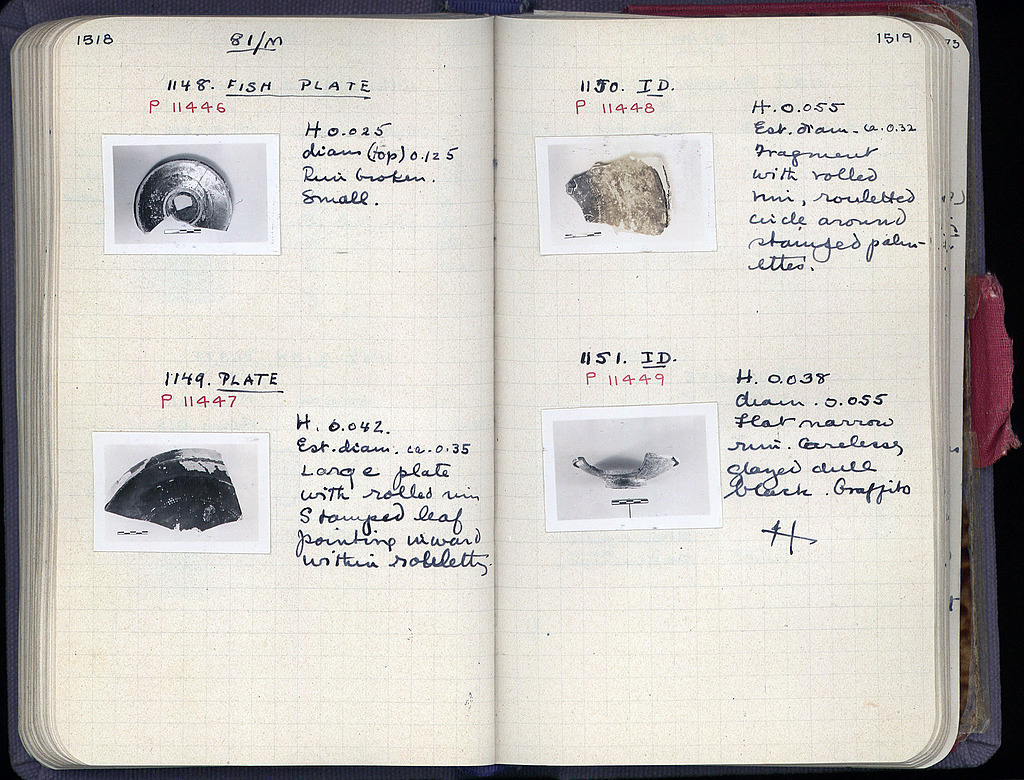 1518
81/M
1148. FISH PLATE
P 11446
H 0.025
diam (top) 0.125
Rim broken.
Small.
1149. PLATE
P 11447
H. 0.042.
Est. diam. ca. 0.35
Large plate
with rolled rim
Stamped leaf
pointing inward
within
1519
75
1150. ID.
P 11448
H. 0.055
Est. diam. ca. 0.32
Fragment
with rolled
rim, rouletted
circle around
stamped palm-
ettes.
1151. ID.
P 11449
H. 0.038
diam. 0.055
Flat narrow
rim. Carelessly
glazed dull
black. Graffito